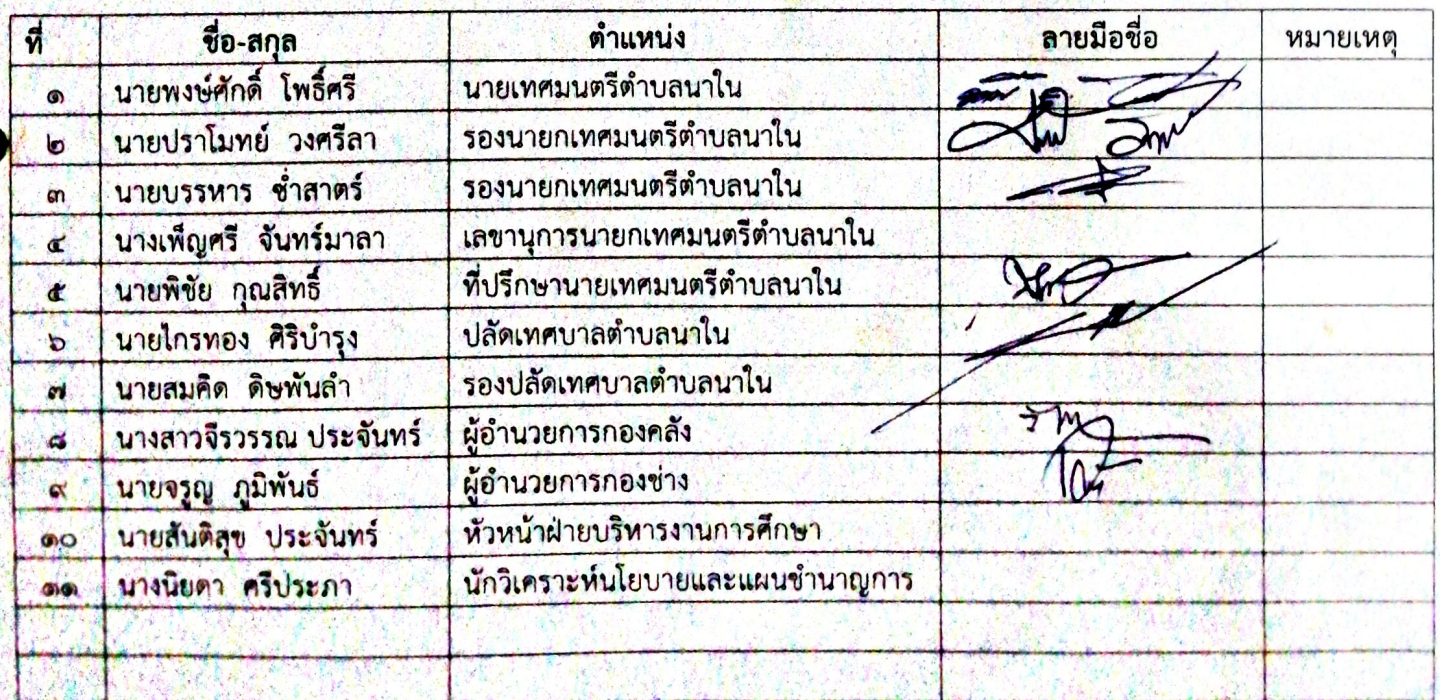 ที่ ชื่อ-สกุล ตำแหน่ง ลายมือชื่อ หมายเหตุ
๑ นายพงษ์ศักดิ์ โพธิ์ศรี นายเทศมนตรีตำบลนาใน
๒ นายปราโมทย์ วงศรีลา รองนายกเทศมนตรีตำบลนาใน
๓ นายบรรหาร ซ้ำสาตร์ รองนายกเทศมนตรีตำบลนาใน
๔ นางเพ็ญศรี จันทร์มาลา เลขานุการนายกเทศมนตรีตำบลนาใน
๕ นายพิชัย กุณสิทธิ์ ที่ปรึกษานายเทศมนตรีตำบลนาใน
๖ นายไกรทอง ศิริบำรุง ปลัดเทศบาลตำบลนาใน
๗ นายสมคิด ดิษพันลำ รองปลัดเทศบาลตำบลนาใน
๘ นางสาวจีรวรรณ ประจันทร์ ผู้อำนวยการกองคลัง
๙ นายจรูญ ภูมิพันธ์ ผู้อำนวยการกองช่าง
๑๐ นายสันติสุข ประจันทร์ หัวหน้าฝ่ายบริหารงานการศึกษา
๑๑ นางนิยดา ศรีประภา นักวิเคราะห์นโยบายและแผนชำนาญการ